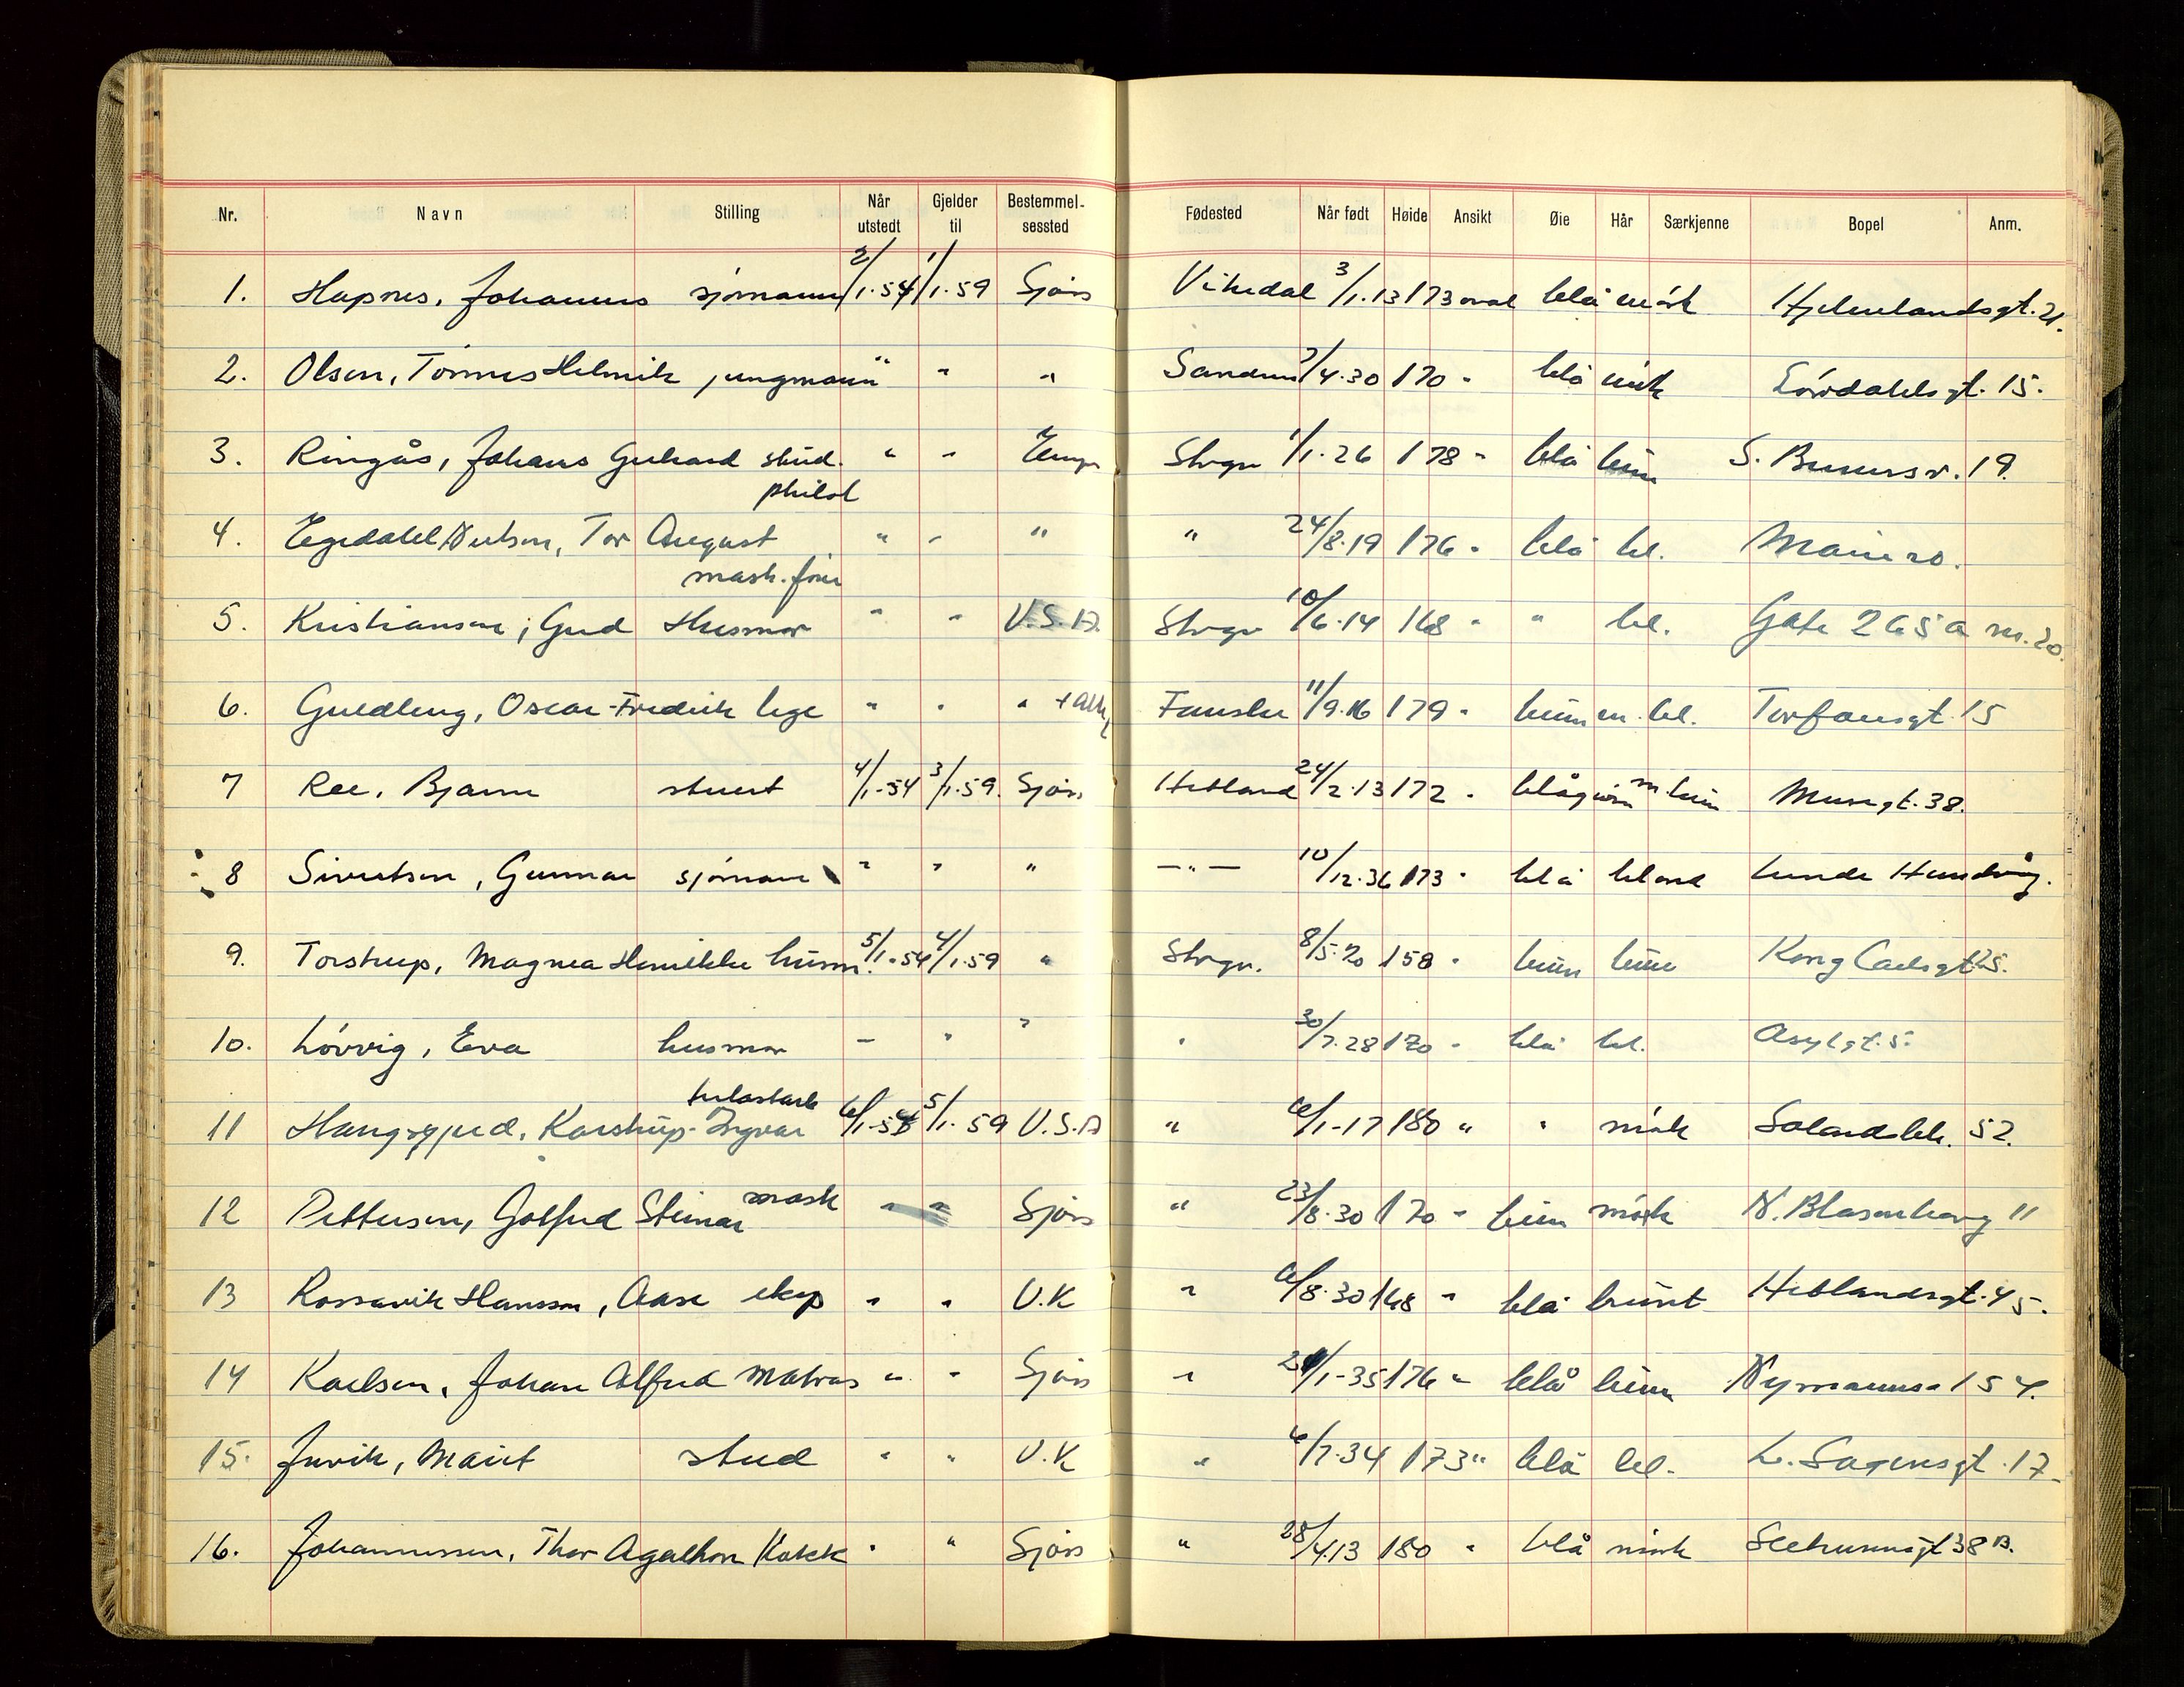 Nr. Navn Stilling Når utstedt Gjelder til Bestemmelsessted Fødested Når født Høide Ansikt Øie Hår Særkjenne Bopel Anm.
1. Hapnes, Johannes sjømann 2/1.54 1/1.59 Sjøss Vikedal 3/1.13 173 oval blå mørk Hjelmelandsgt. 21.
2. Olsen, Tønnes Helmik jungmann " " " 7/4.30 170 " blå mørk Lövdahlsgt. 15.
3. Ringås, Johans Gerhard stud. " " Europa Stvgr 1/1.26 178 " blå brun S. Brunsv. 19.
philol
4. Egedahl Tor August " " " " 24/8.19 176 " blå bl. 20.
mask.
5. Kristiansen, Gud Husmor " " U.S.A. Stvgr 10/6.14 168 " " bl. Gate 265 a nr. 20.
6. Oscar Fredrik lege " " " Fauske 11/9.16 179 " brun m. bl. 15
7 Ree, Bjarne stuert 4/1.54 3/1.59. Sjøss Hetland 24/2.13 172 " blågrøn m. brun Musegt. 38.
8 Sivertsen, Gunnar sjømann " " " —"— 10/12.36 173 " blå blond Lunde Hundvåg.
9. Torstrup, Magnea Henrikke husm. 5/1.54 4/1.59 " Stvgr. 8/5.20 158 " brun brun Kong Carlsgt 25.
10. Lövvig, Eva husmor — " " " 30/7.28 170 " blå bl. Asylgt. 5.
11 Karstrup Ingvar 6/1.54 5/1.59 U.S.A " 6/1-17 180 " " mörk 52.
12 Pettersen, Gotfred Steinar mask " " Sjøss " 23/8.30 170 " brun mörk N. Blasenborg 11
13 Rossavik Hansson, Aase eksp " " U.K " 6/8.30 168 " blå brunt Hetlandsgt. 45.
14 Karlsen, Johan Alfred Matros " " Sjøss " 1-35 176 " blå brun 154.
15. Juvik, Marit stud " " U.K " 6/7.34 173 " blå bl. L. Sagensgt. 17.
16. Johannessen, Thor Agathon Kokk " " Sjøss " 28/4.13 180 " blå mörk Seehusensgt 38 B.